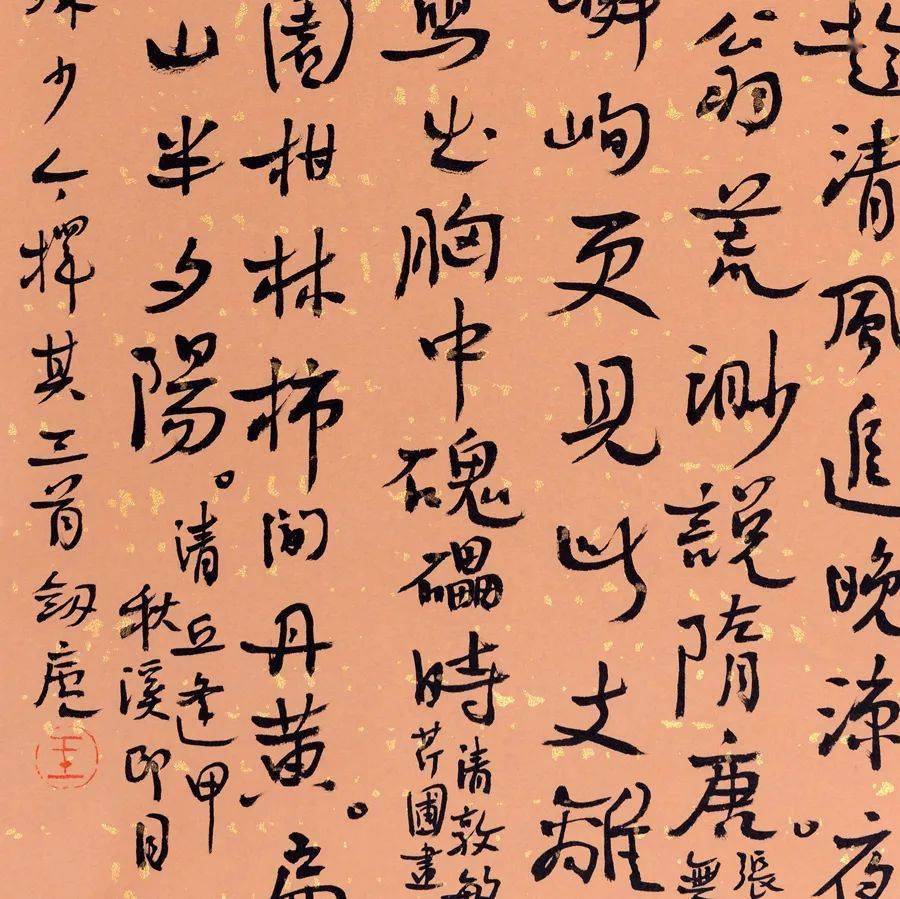 趁清風追晚涼夜
翁荒渺說隋唐。張
無
嶙峋更見此支離
寫出胸中磈礧時清敦敏
芹圃畫
園柑林柿間丹黃。扁
山半夕陽。清丘逢甲
秋溪即目
殊少今擇其三首劒廬
王